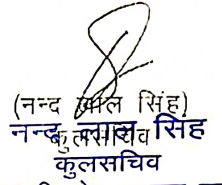 (नन्द लाल सिंह)
कुलसचिव
नन्द लाल सिंह
कुलसचिव